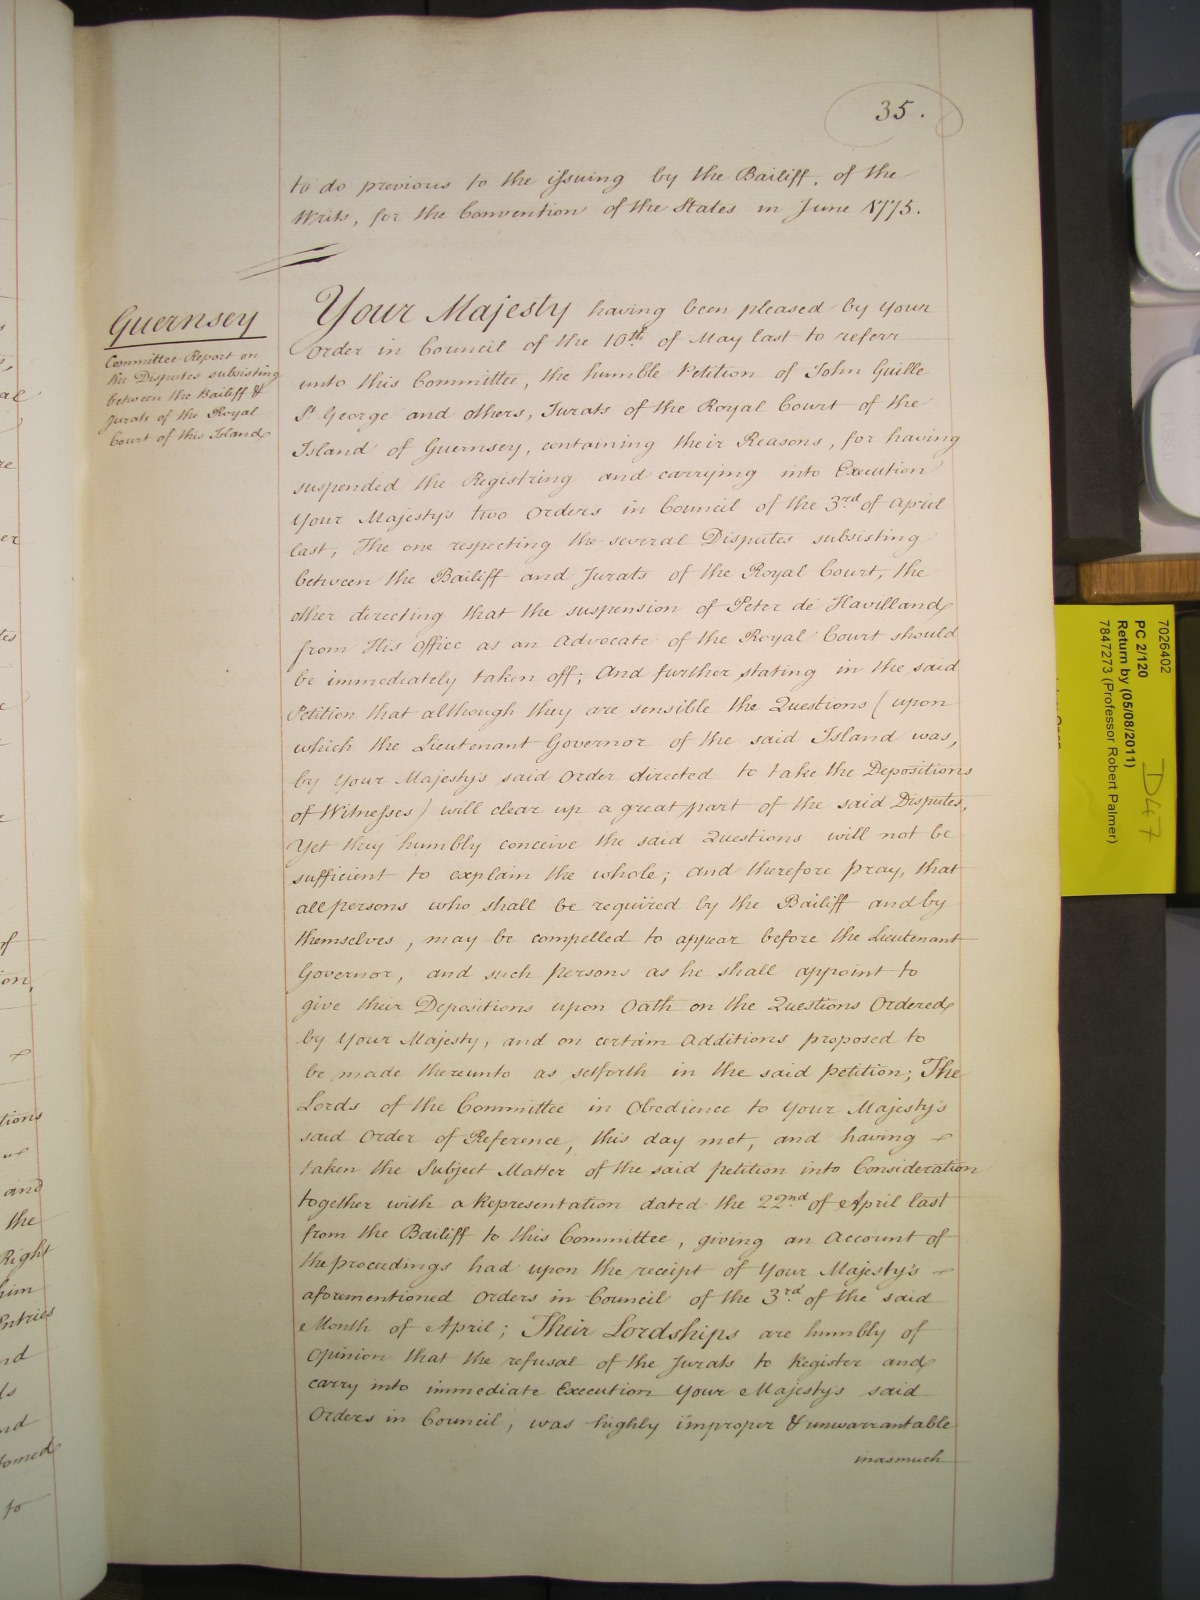 35.
to do previous to the issuing by the Bailiff, of the
Writs, for the Convention of the States in June 1775.
Guernsey
Committee Report on
the Disputes subsisting
between the Bailiff &
Jurats of the Royal
Court of this Island
Your Majesty having been pleased by Your
Order in Council of the 10th of May last to referr
unto this Committee, the humble Petition of John Guille
St George and others, Jurats of the Royal Court of the
Island of Guernsey, containing their Reasons, for having
suspended the Registring and carrying into Execution
Your Majesty's two Orders in Council of the 3rd of April
last, The one respecting the several Disputes subsisting
between the Bailiff and Jurats of the Royal Court, the
other directing that the suspension of Peter de Havilland
from His Office as an Advocate of the Royal Court should
be immediately taken off; And further stating in the said
Petition that although they are sensible the Questions (upon
which the Lieutenant Governor of the said Island was,
by Your Majesty's said Order directed to take the Depositions
of Witnesses) will clear up a great part of the said Disputes,
Yet they humbly conceive the said Questions will not be
sufficient to explain the whole; and therefore pray, that
all persons who shall be required by the Bailiff and by
themselves, may be compelled to appear before the Lieutenant
Governor, and such persons as he shall appoint to
give their Depositions upon Oath on the Questions Ordered
by Your Majesty, and on certain Additions proposed to
be made thereunto as setforth in the said petition; The
Lords of the Committee in Obedience to Your Majesty's
said Order of Reference, this day met, and having
taken the Subject Matter of the said petition into Consideration
together with a Representation dated the 22nd of April last
from the Bailiff to this Committee, giving an Account of
the proceedings had upon the receipt of Your Majesty's
aforementioned Orders in Council of the 3rd of the said
Month of April; Their Lordships are humbly of
Opinion that the refusal of the Jurats to Register and
carry into immediate Execution Your Majesty's said
Orders in Council, was highly improper & unwarrantable
inasmuch
7026402
PC 2/120
Return by (05/08/2011)
7847273 (Professor Robert Palmer)
D47